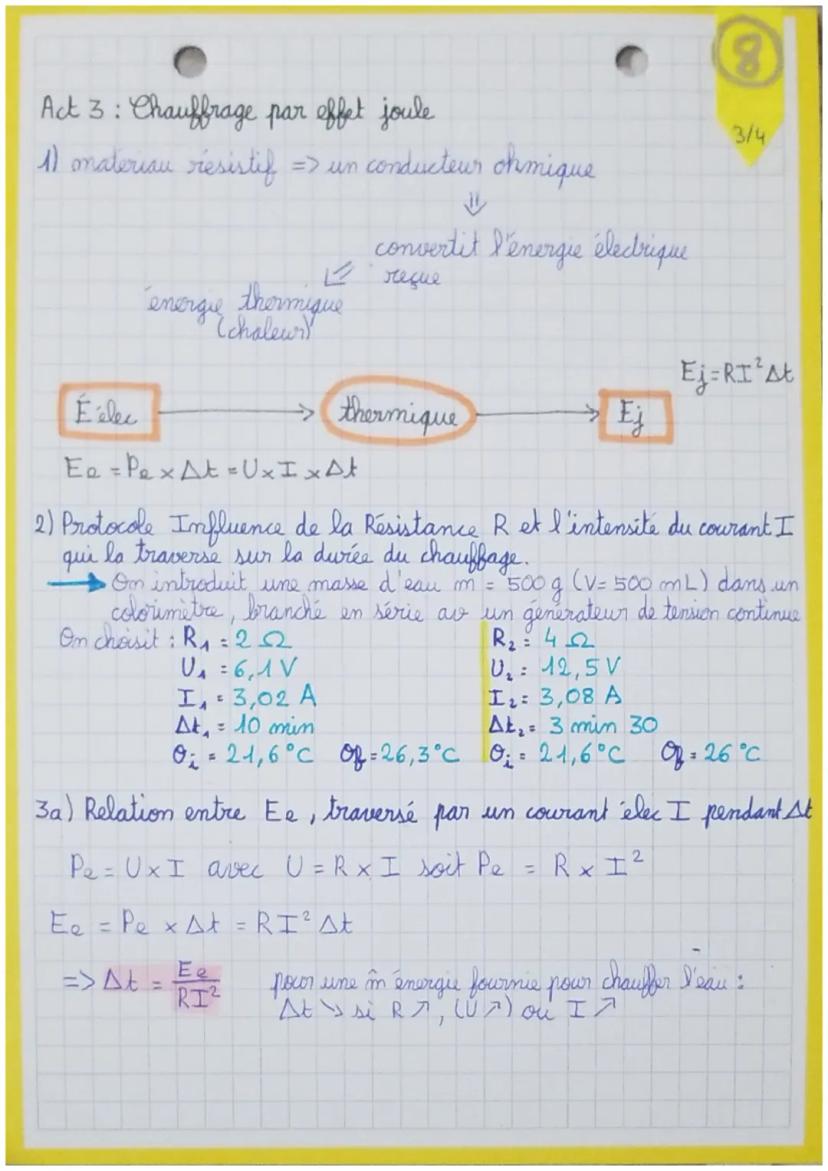 8
3/4
Act 3 : Chauffrage par effet joule
1) materiau résistif => un conducteur ohmique
⇓
convertit l'énergie électrique
reçue
⇙
énergie thermique
(chaleur)
Ej=RI²Δt
É élec → thermique → Ej
Ee = Pe x Δt = U x I x Δt
2) Protocole Influence de la Résistance R et l'intensité du courant I
qui la traverse sur la durée du chauffage.
→ On introduit une masse d'eau m = 500 g (V= 500 mL) dans un
colorimètre, branché en série av un générateur de tension continue
On choisit : R₁ = 2 Ω R₂ = 4 Ω
U₁ = 6,1 V U₂ = 12,5 V
I₁ = 3,02 A I₂ = 3,08 A
Δt₁ = 10 min Δt₂ = 3 min 30
θi = 21,6°C θf = 26,3°C θi = 21,6°C θf = 26°C
3a) Relation entre Ee, traversé par un courant élec I pendant Δt
Pe = U x I avec U = R x I soit Pe = R x I²
Ee = Pe x Δt = RI² Δt
=> Δt = Ee/RI² pour une m̂ énergie fournie pour chauffer l'eau :
Δt ↘ si R ↗, (U ↗) ou I ↗